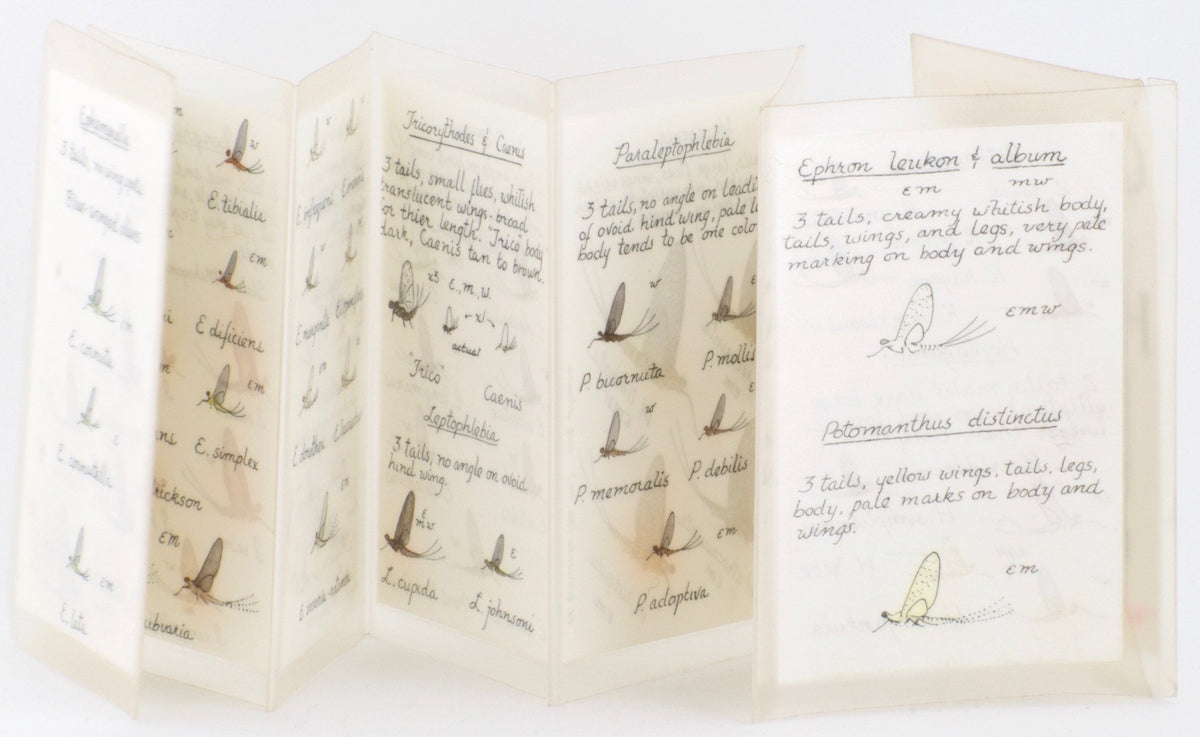 3 tails, no wing
E. cornuta
E
E. cornutella
em
E. lata
w
E. tibialis
em
E. dificiens
em
E. simplex
rickson
em
ubvaria
w
E. infrequens
w
em
em
Tricorythodes & Caenis
3 tails, small flies, whitish
translucent wings-broad
for thier length. "Trico body
dark, Caenis tan to brown.
x3 E., m., w.
x1
actual
"Trico" Caenis
Leptophlebia
3 tails, no angle on ovoid
hind wing.
E
m w
E
L. cupida L. johnsoni
Paraleptophlebia
3 tails, no angle on leadi
of ovoid hind wing, pale l
body tends to be one colo
w
P. bicornuta P. mollis
w
P. memoralis P. debilis
em
P. adoptiva
Ephron leukon & album
em mw
3 tails, creamy whitish body,
tails, wings, and legs, very pale
marking on body and wings.
emw
Potomanthus distinctus
3 tails, yellow wings, tails, legs,
body, pale marks on body and
wings.
em